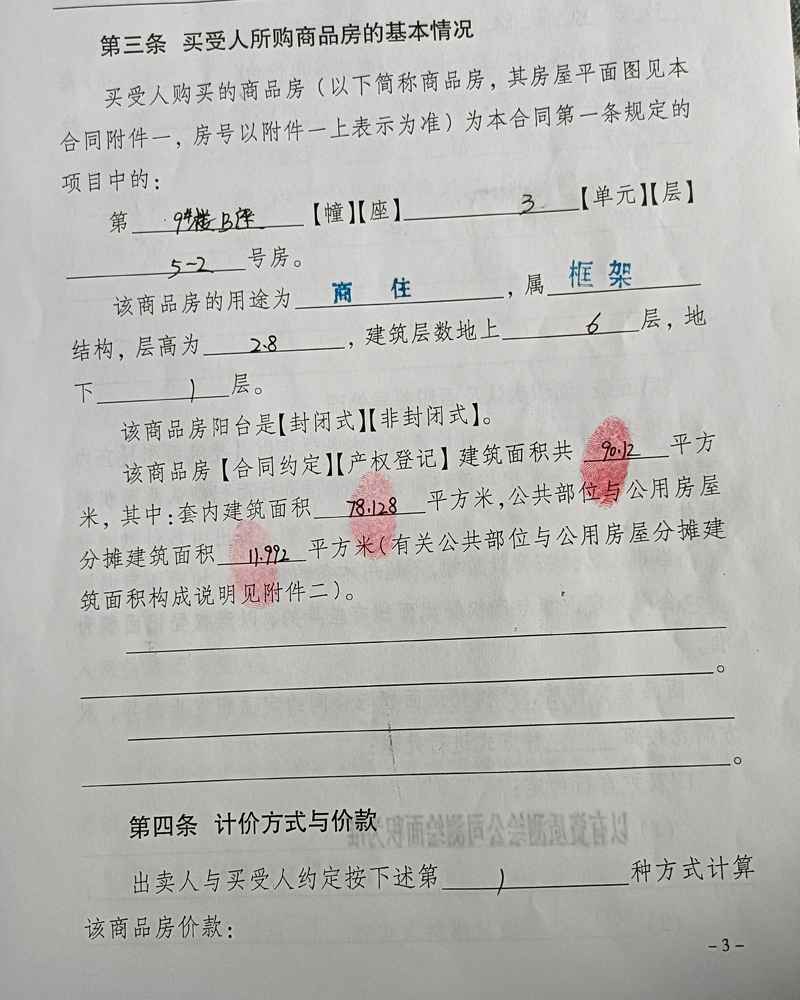 第三条 买受人所购商品房的基本情况
买受人购买的商品房（以下简称商品房，其房屋平面图见本
合同附件一，房号以附件一上表示为准）为本合同第一条规定的
项目中的：
第 9#楼B座 【幢】【座】 3 【单元】【层】
5-2 号房。
该商品房的用途为 商 住 ，属 框架
结构，层高为 2.8 ，建筑层数地上 6 层，地
下 1 层。
该商品房阳台是【封闭式】【非封闭式】。
该商品房【合同约定】【产权登记】建筑面积共 90.12 平方
米，其中：套内建筑面积 78.128 平方米，公共部位与公用房屋
分摊建筑面积 11.992 平方米（有关公共部位与公用房屋分摊建
筑面积构成说明见附件二）。
。
。
第四条 计价方式与价款
出卖人与买受人约定按下述第 1 种方式计算
该商品房价款：
-3-